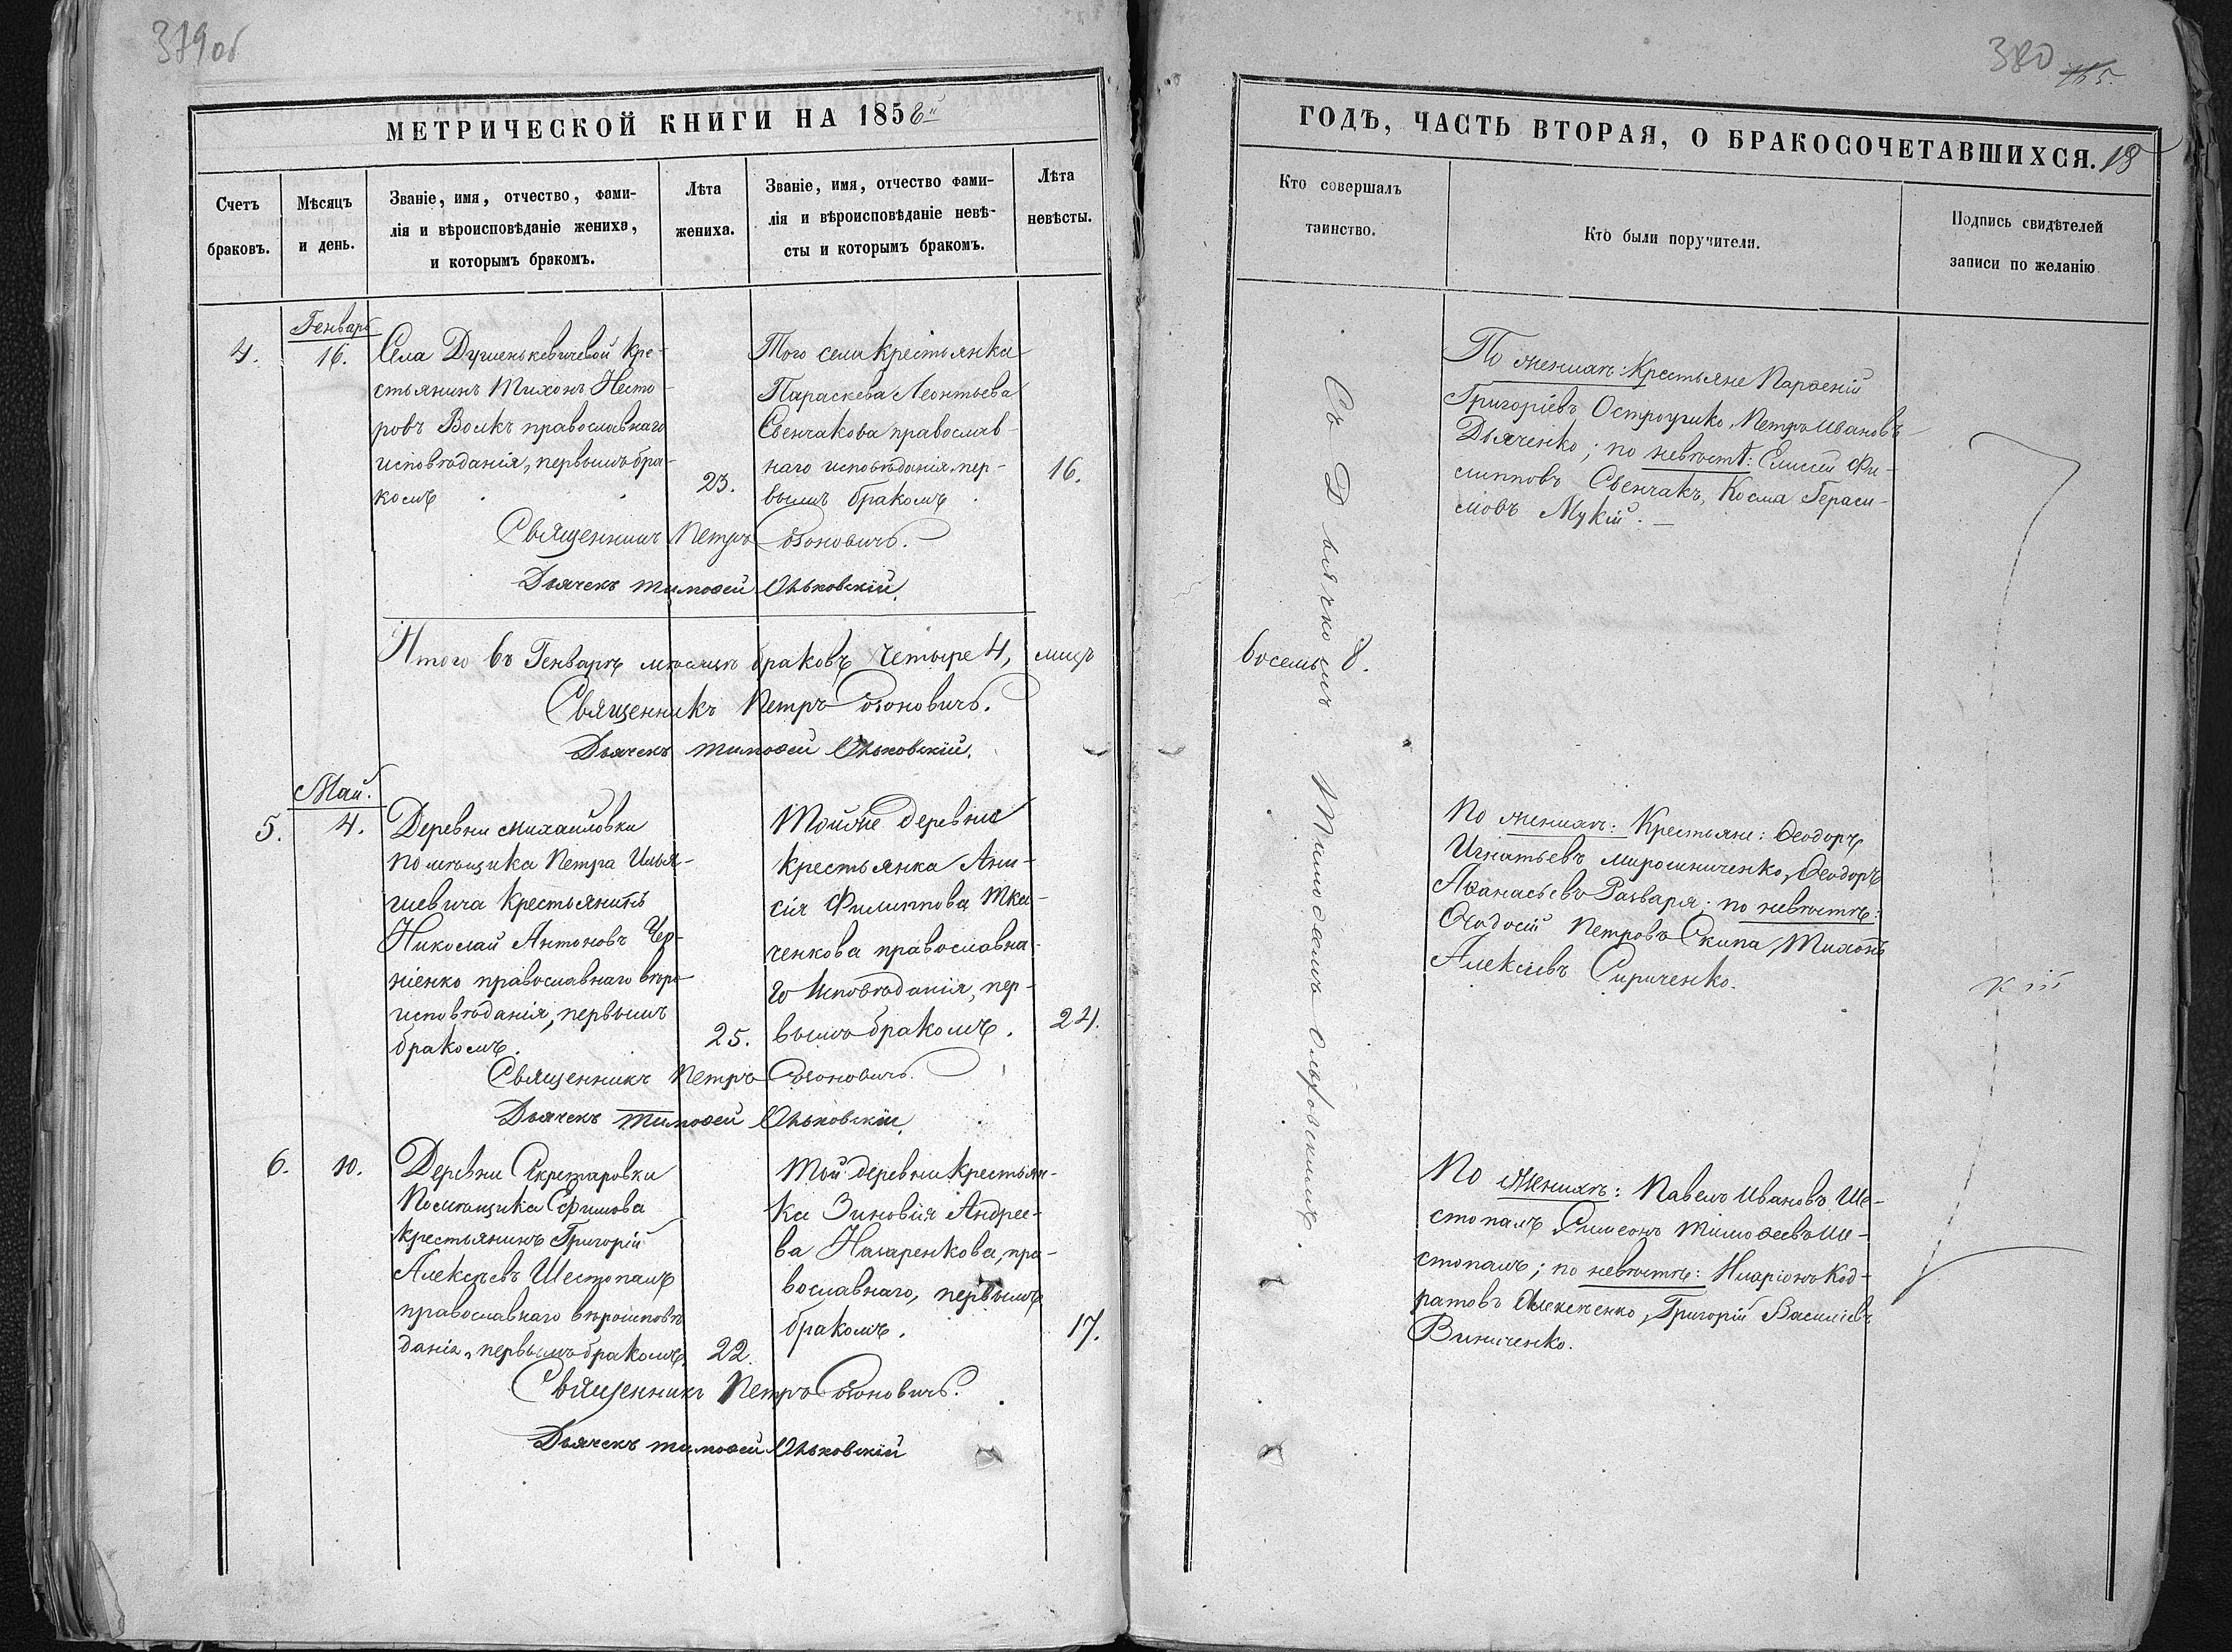 379 об
МЕТРИЧЕСКОЙ КНИГИ НА 1858й
Счетъ браковъ.
Мѣсяцъ и день.
Званіе, имя, отчество, фами-
лія и вѣроисповѣданіе жениха,
и которымъ бракомъ.
Лѣта жениха.
Званіе, имя, отчество фами-
лія и вѣроисповѣданіе невѣ-
сты и которымъ бракомъ.
Лѣта невѣсты.
Генварь
4.
16.
Села Душенькевичевой кре-
стьянинъ Тихонъ Несто-
ровъ Волкъ православнаго
исповѣданія, первымъ бра-
комъ
23.
Того села крестьянка
Параскева Леонтьева
Свенчакова православ-
наго исповѣданія, пер-
вымъ бракомъ
16.
Священникъ Петръ
Дьячекъ Тимоѳей
Итого въ Генварѣ мѣсяцѣ браковъ четыре 4, лицъ
Священникъ Петръ
Дьячекъ Тимоѳей
Май.
5.
4.
Деревни Михайловки
помѣщика Петра Илья-
шевича крестьянинъ
Николай Антоновъ Чер-
ніенко православнаго вѣро-
исповѣданія, первымъ
бракомъ.
25.
Тойже деревни
крестьянка Ани-
сія Филиппова Тка-
ченкова православна-
го исповѣданія, пер-
вымъ бракомъ.
24.
Священникъ Петръ
Дьячекъ Тимоѳей
6.
10.
Деревни Секретаровки
Помѣщика Ефимова
крестьянинъ Григорій
Алексѣевъ Шестопалъ
православнаго вѣроисповѣ
данія, первымъ бракомъ.
22.
Той деревни крестьян-
ка Зиновія Андрее-
ва Назаренкова, пра-
вославнаго, первымъ
бракомъ.
17.
Священникъ Петръ
Дьячекъ Тимоѳей
380
165.
ГОДѢ, ЧАСТЬ ВТОРАЯ, О БРАКОСОЧЕТАВШИХСЯ. 18
Кто совершалъ
таинство.
Кто были поручители.
Подпись свидѣтелей
записи по желанію
Съ Дьячкомъ Тимоѳеемъ
восемь 8.
По женихѣ: Крестьяне Парѳеній
Григоріевъ Остроушко, Петръ Ивановъ
Дьяченко; по невѣстѣ: Елисей Фи-
липповъ Свенчакъ, Косма Гераси-
мовъ Мукій.
По женихѣ: Крестьяне: Ѳеодоръ
Игнатьевъ Мирошниченко, Ѳеодоръ
Аѳанасьевъ Разваря; по невѣстѣ:
Ѳеодосій Петровъ Скипа, Тихонъ
Алексіевъ Сириченко.
кій
По женихѣ: Павелъ Ивановъ Ше-
стопалъ, Симеонъ Тимоѳеевъ Ше-
стопалъ; по невѣстѣ: Иларіонъ Код-
ратовъ Алексѣенко, Григорій Василіевъ
Виниченко.